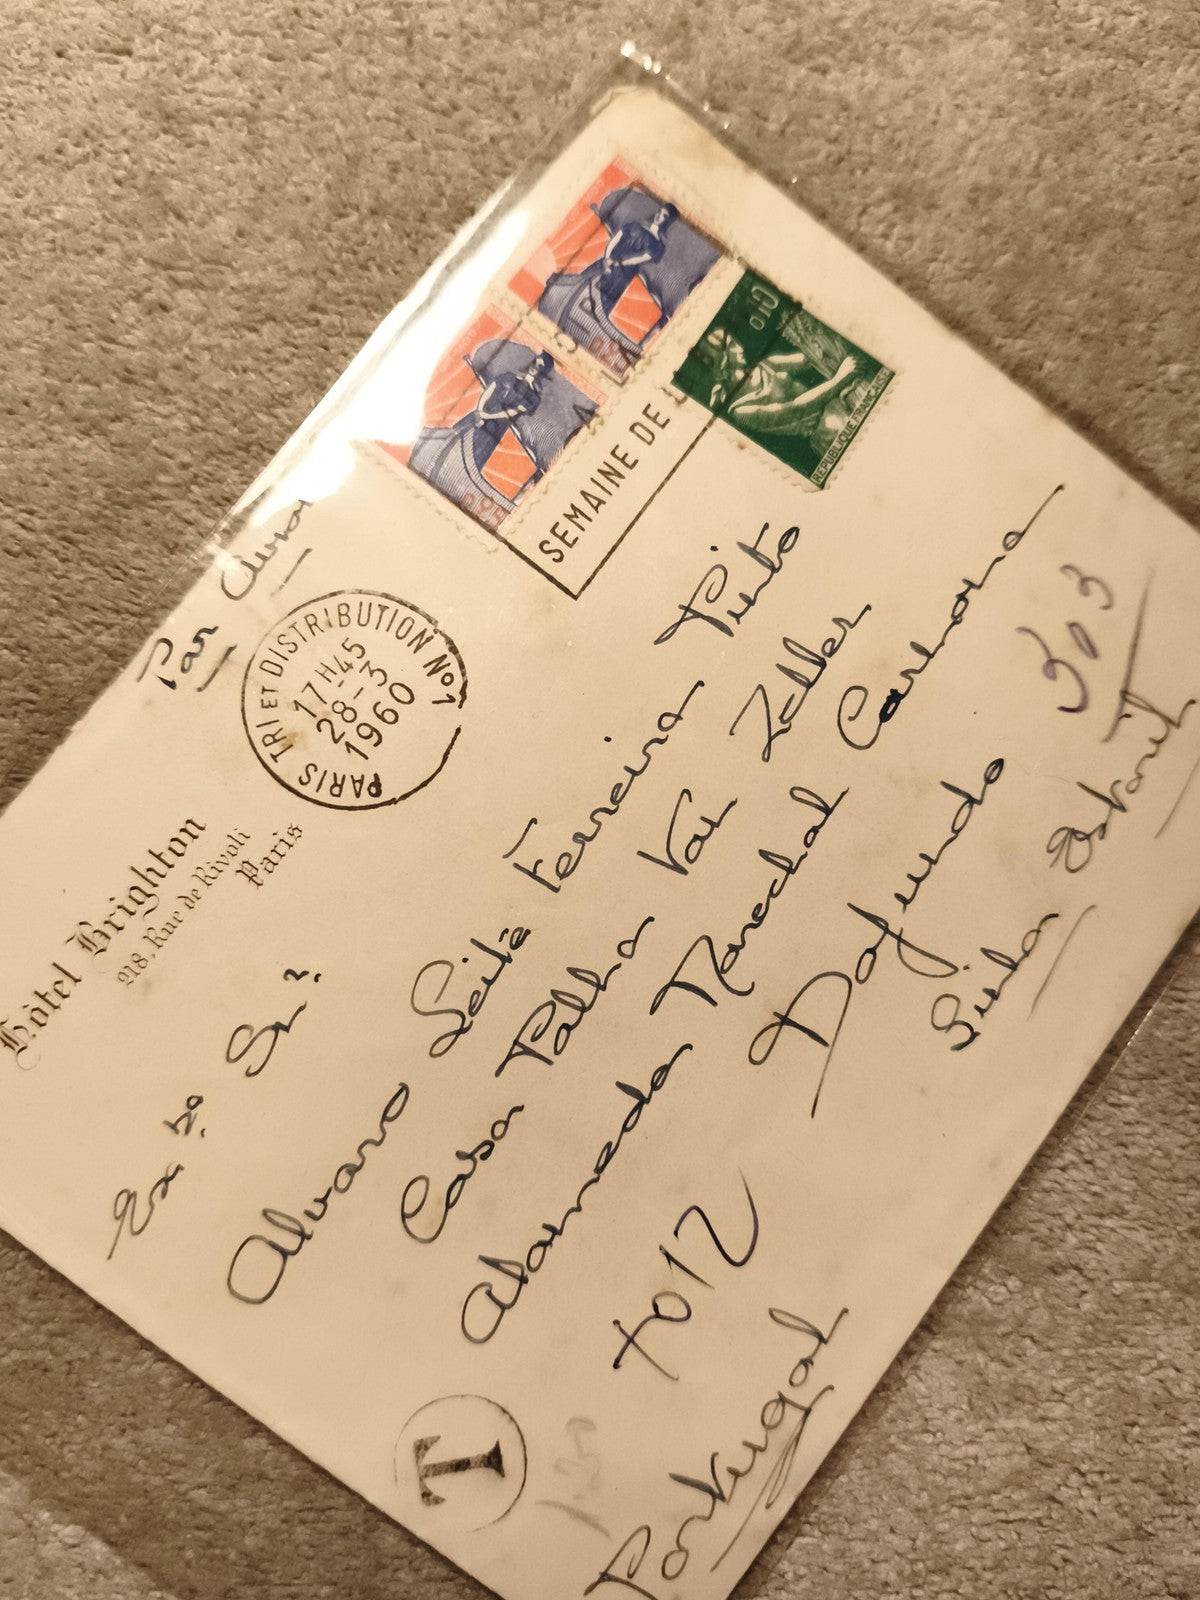 Par Avion
Hôtel Brighton
218, Rue de Rivoli
Paris
PARIS TRI ET DISTRIBUTION No1
17H45
28-3
1960
SEMAINE DE
0,10
REPUBLIQUE FRANÇAISE
Exmo Snr
Alvaro Leite Ferreira Pinto
Casa Palha Van Zeller
Alameda Marechal Carmona
Dafundo
Linha Estoril
303
+012
T
1.20
Portugal